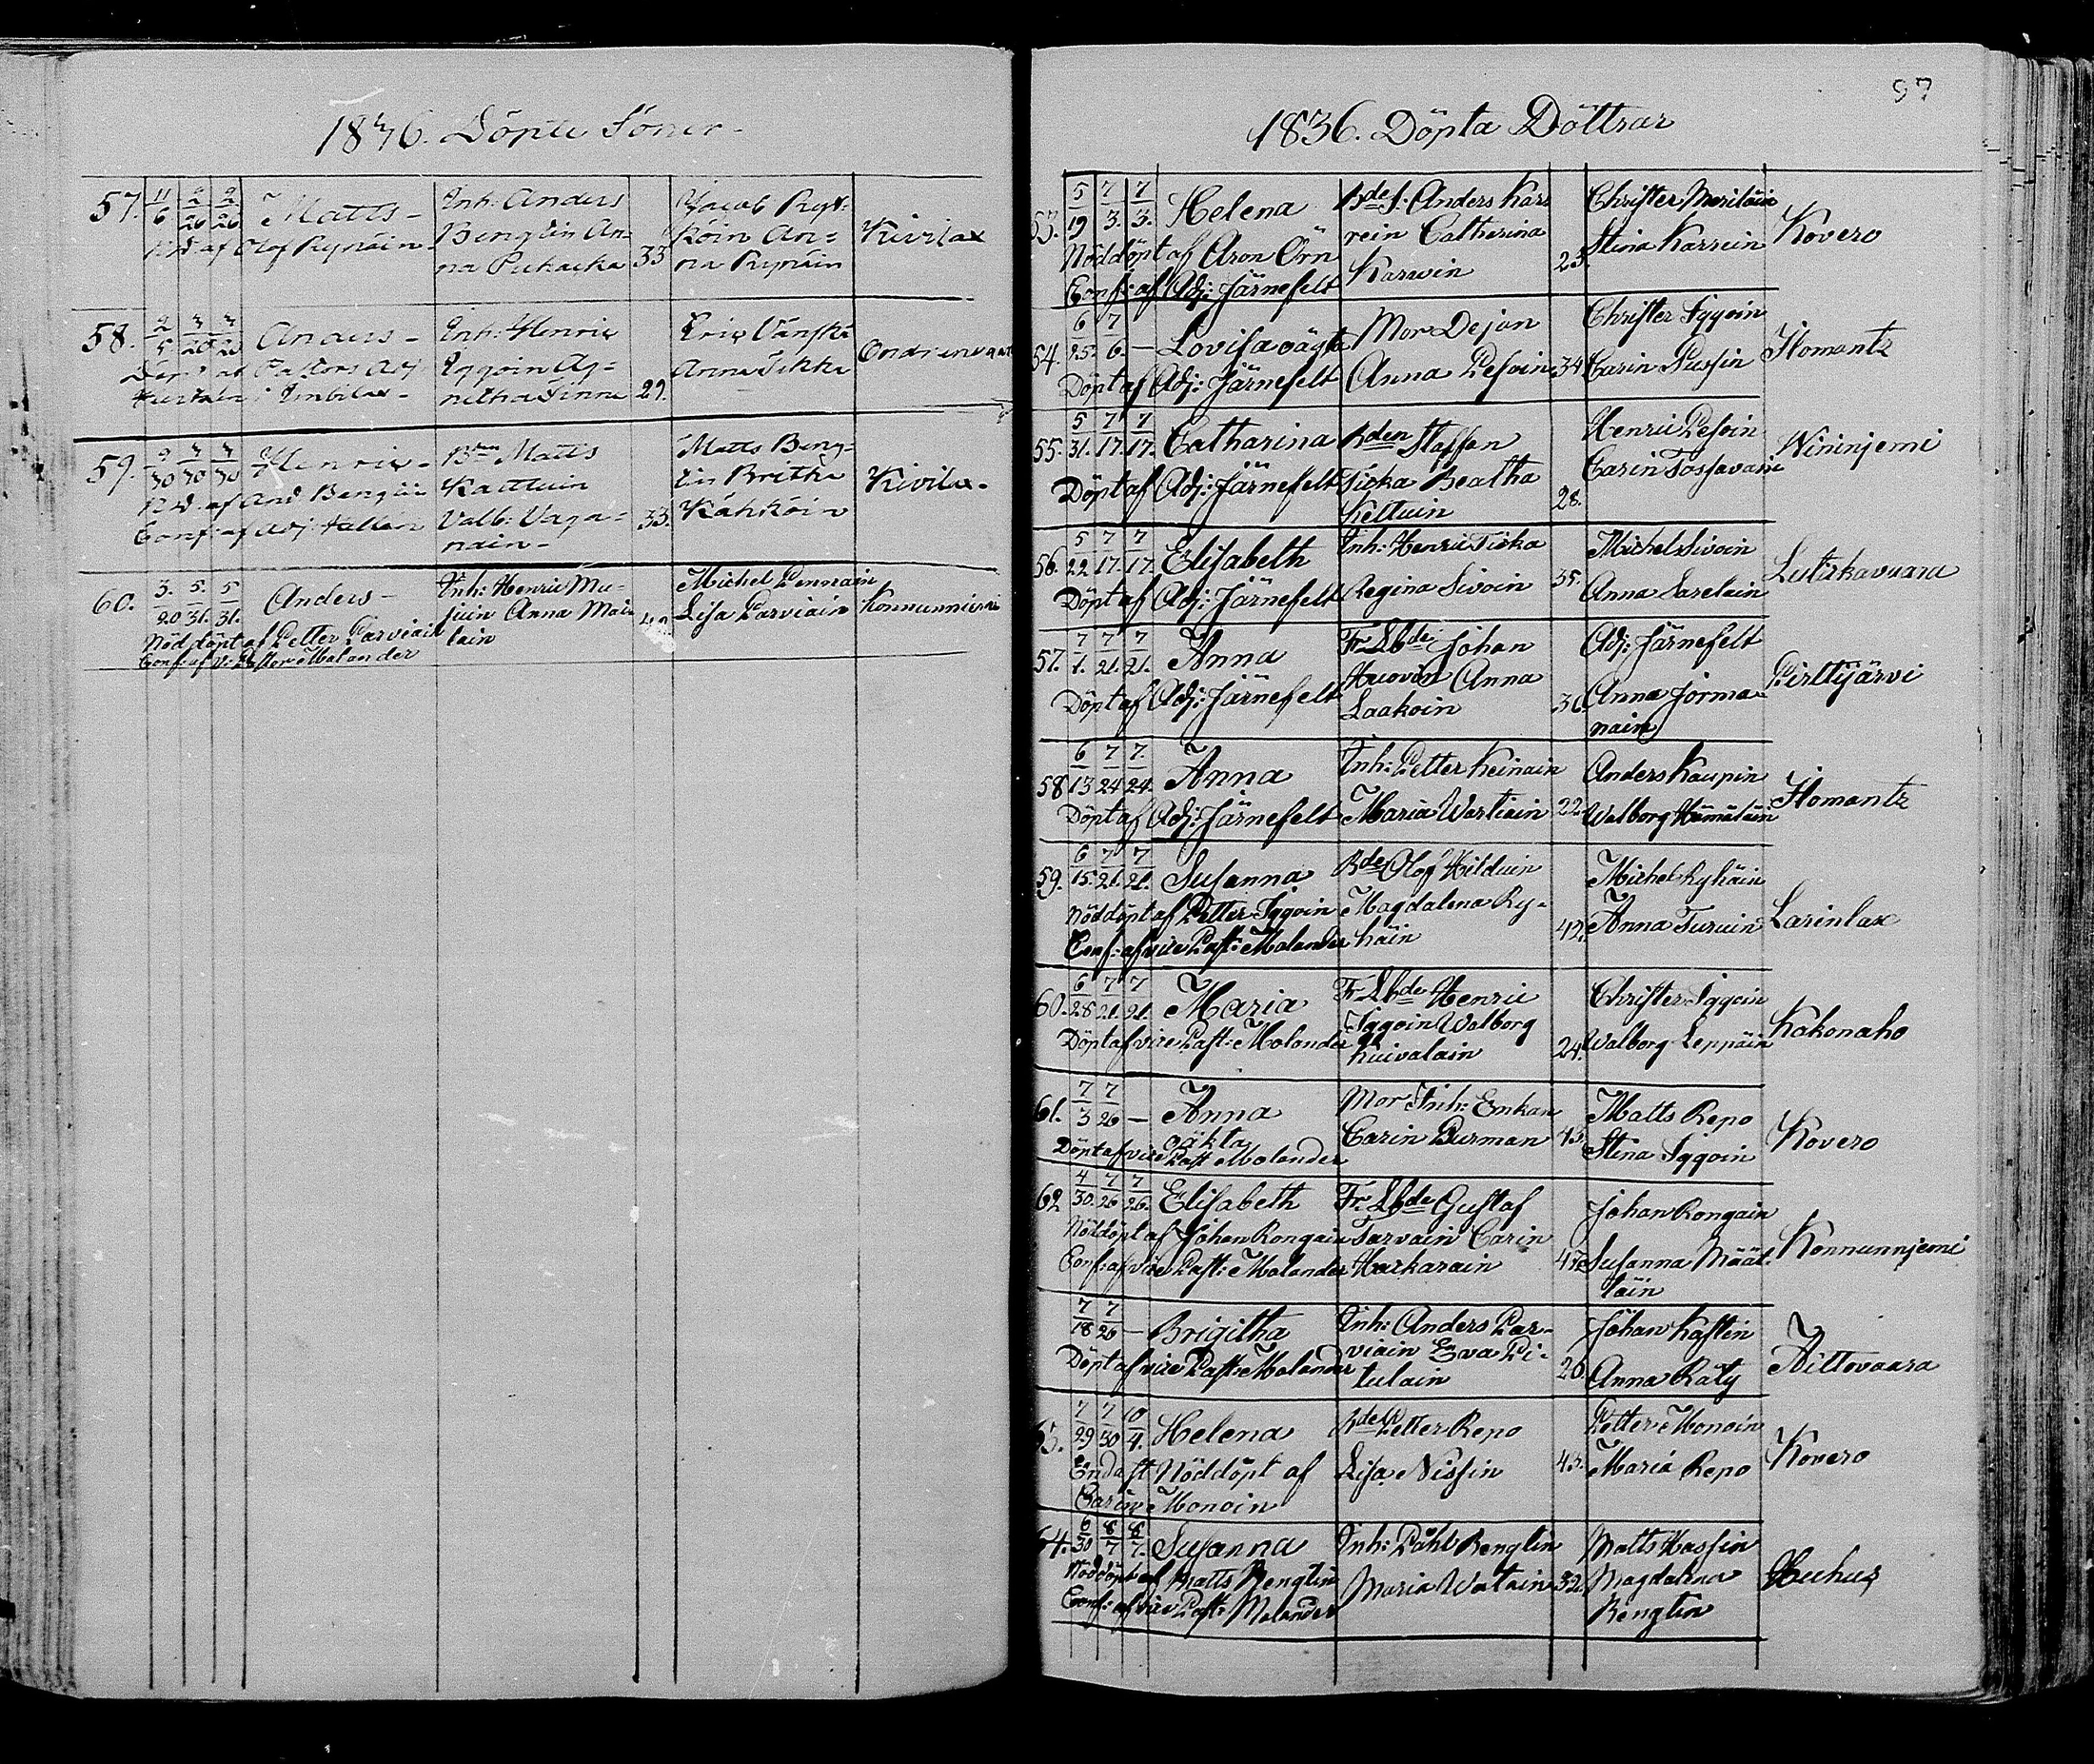 1836. Döpte Söner
57. 11/6 2/26 2/26 Matts - Inh: Anders Jacob
af Olof Bengtin An- 33 Kivilax
na
58. 2/5 Anders - Inh: Henric Eric Vänskä
Iggoin Ag- 29. Anna Sikka
i Imbilax - netha Sinno
59. Henric - Matts Matts Beng-
af And Bengtin Kattuin tin Britha Kivilax -
Conf: af Adj: Hallen Valb: Vaga- 33. Kähköin
nain -
60. 3/20 5/31. 5/31. Anders - Inh: Henric Mu- Michel Pennain
juin Anna Mai- 42 Lisa Parviain Konnunniemi
Nöddöpt af Petter Parviain lain
Conf: af v: Pastor Malander
97
1836. Döpta Döttrar
53. 5/19 7/3. 7/3. Helena Bde S: Anders Kar- Christer Meriläin
Nöddöpt af Aron Örn rein Catharina 25. Stina Karrein Kovero
Conf: af Adj: Järnefelt Karwin
54. 6/25. 7/6. - Lovisa oägta Mor Dejan Christer Iggoin
Döpt af Adj: Järnefelt Anna Pesoin 34. Carin Pussin Ilomantz
55. 5/31. 7/17. 7/17. Catharina Bden Staffan Henric Pesoin
Döpt af Adj: Järnefelt Tiska Beatha 28. Carin Tossavain Nininjemi
Kettuin
56. 5/22 7/17. 7/17. Elisabeth Inh: Henric Tiska Michel Sivoin
Döpt af Adj: Järnefelt Regina Sivoin 35. Anna Sarelain Lutikavaara
57. 7/1. 7/21. 7/21. Anna Fr. Lbde Johan Adj: Järnefelt
Döpt af Adj: Järnefelt Huovin Anna 36. Anna Jorma- Pirttijärvi
Laakoin nain
58 6/13 7/24 7/24. Anna Inh: Petter Keinain Anders Kaupin
Döpt af Adj: Järnefelt Maria Wartiain 22. Walborg Hämäläin Ilomantz
59. 6/15. 7/21. 7/21. Susanna Bde Olof Hilduin Michel Ryhäin
Nöddöpt af Petter Iggoin Magdalena Ry- 42. Anna Turuin Larinlax
Conf: af vice Past: Molander häin
60. 6/28 7/21. 7/21. Maria Fr. Lbde Henric Christer Iggoin
Döpt af vice Past: Molander Iggoin Walborg 24. Walborg Leppäin Kakonaho
Huivalain
61. 7/3 7/26 - Anna Mor Inh: Enkan Matts Repo
oäkta Carin Purman 43. Stina Iggoin Kovero
Döpt af vice Past Molander
62 4/30. 7/26 7/26. Elisabeth Fr. Lbde Gustaf Johan Rongain
Nöddöpt af Johan Rongain Tarvain Carin 47. Susanna Määt- Konnunnjemi
Conf: af vice Past: Molander Harkarain täin
7/18 7/26 - Brigitha Inh: Anders Par- Johan Kastin
Döpt af vice Past: Molander viain Eva Pi- 26. Anna Räty Aittovaara
tulain
63. 7/29 7/30 10/4. Helena Bde Petter Repo Petter Monoin
Endast Nöddöpt af Lisa Nissin 43. Maria Repo Kovero
Carin Monoin
64. 6/30 8/7 8/7. Susanna Inh: Påhl Bengtin Matts Hassin
Nöddöpt af Matts Bengtin Maria Vatain 32. Magdalena Huhus
Conf: af vice Past: Molander Bengtin